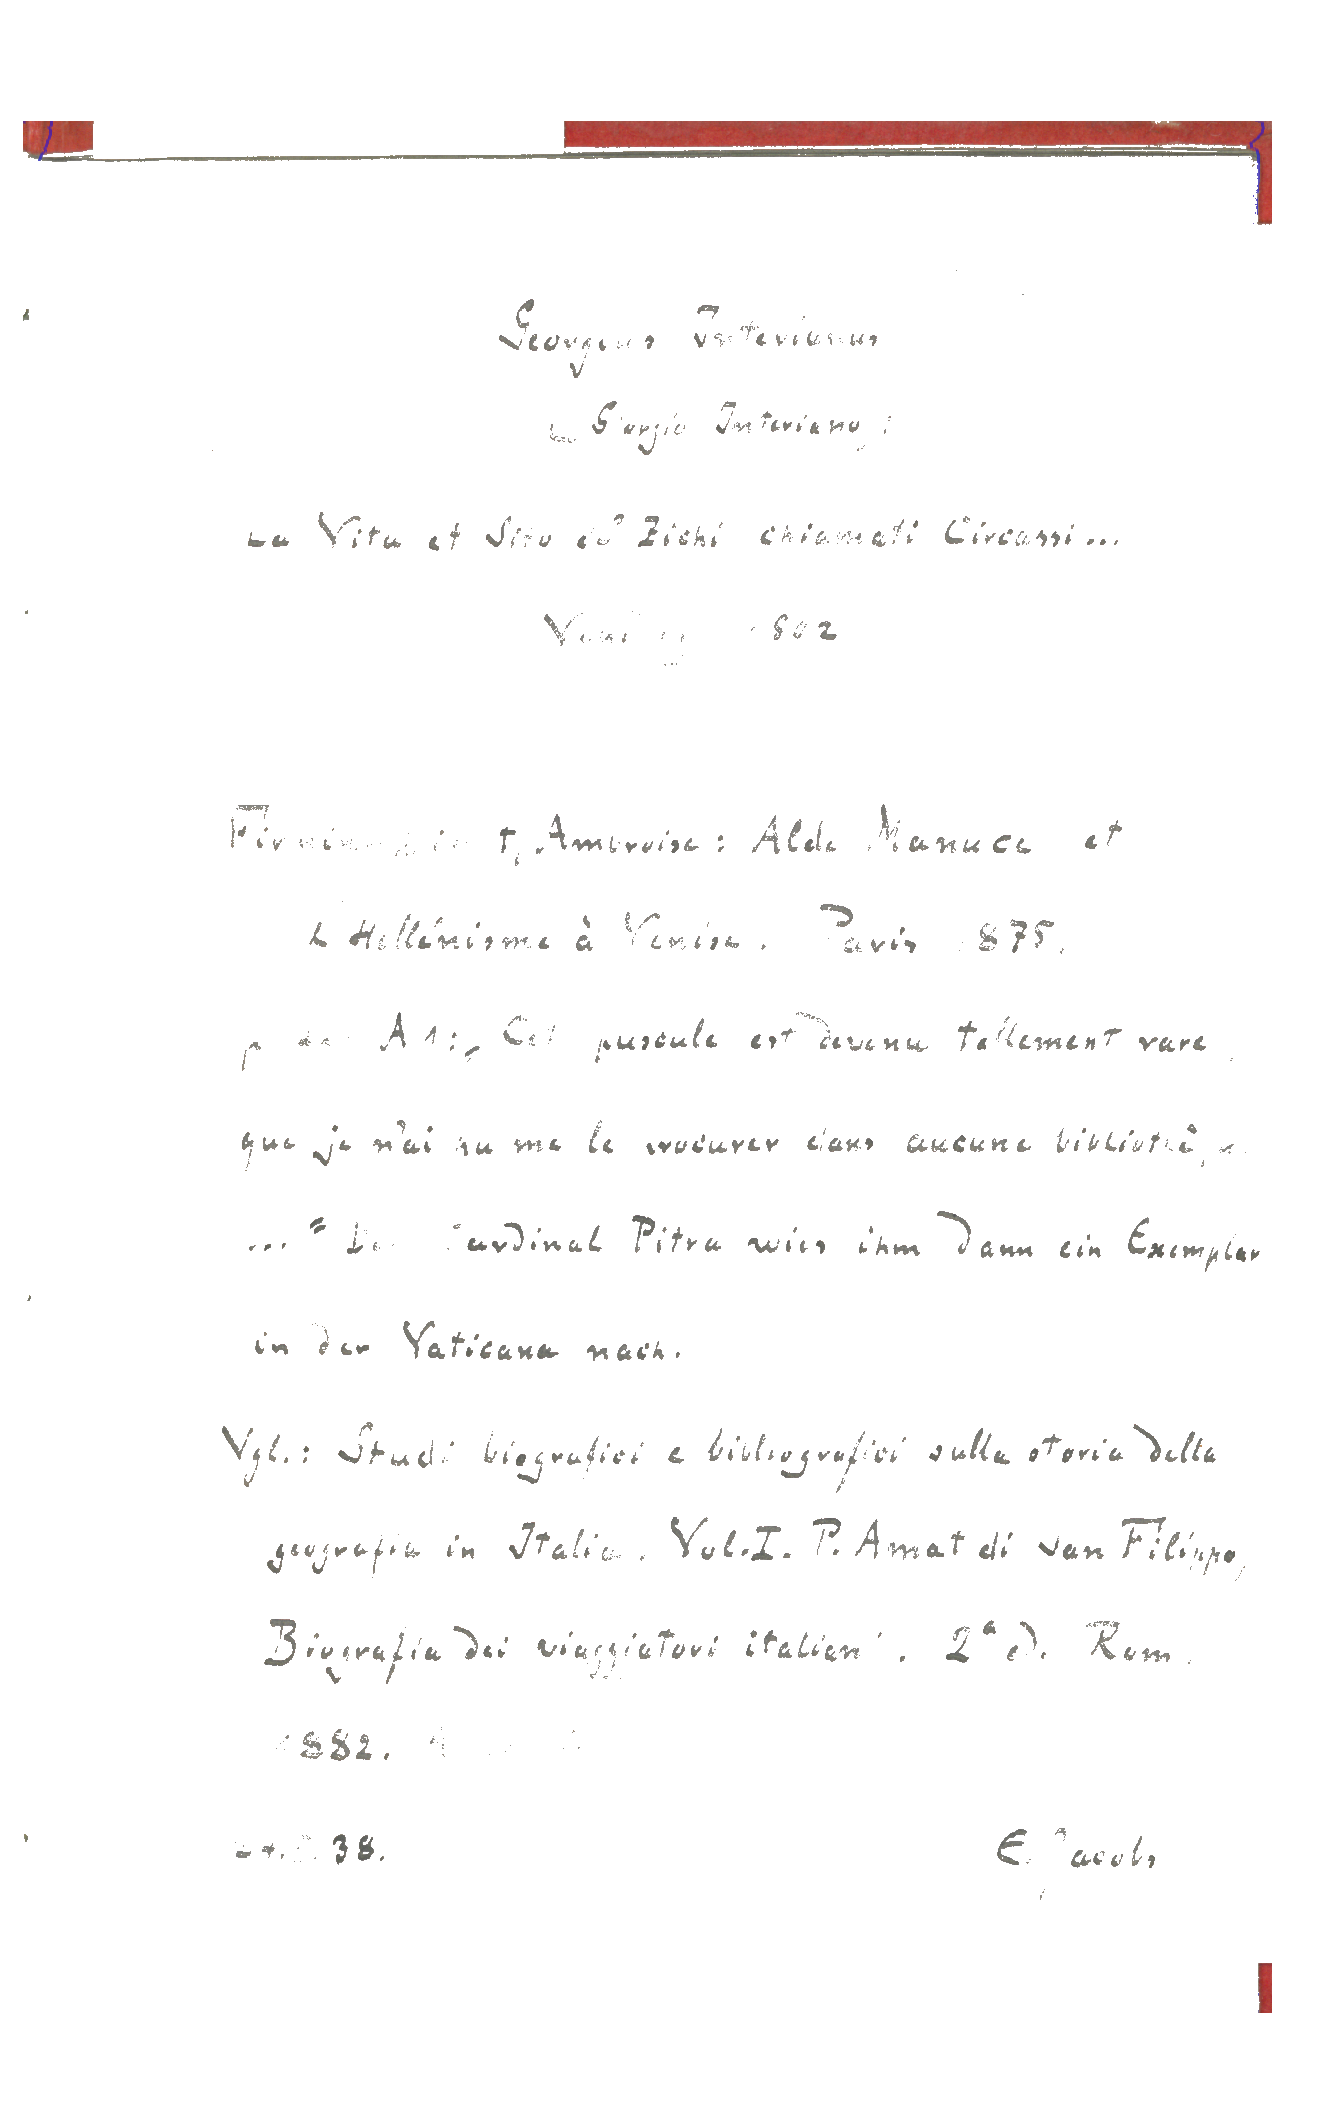 Georgius Interianus
Giorgio Interiano:
La Vita et Sito de' Zichi chiamati Circassi...
Venedig 1502
Firmin-Didot, Ambroise: Alde Manuce et
L'Hellénisme à Venise. Paris 1875.
A 1: „Cet opuscule est devenu tellement rare,
que je n'ai pu me le procurer dans aucune bibliothèque
..." Der Cardinal Pitra wies ihm dann ein Exemplar
in der Vaticana nach.
Vgl.: Studi biografici e bibliografici sulla storia della
geografia in Italia. Vol. I. P. Amat di San Filippo,
Biografia dei viaggiatori italiani. 2ª ed. Rom.
1882.
38. E. Jacobs